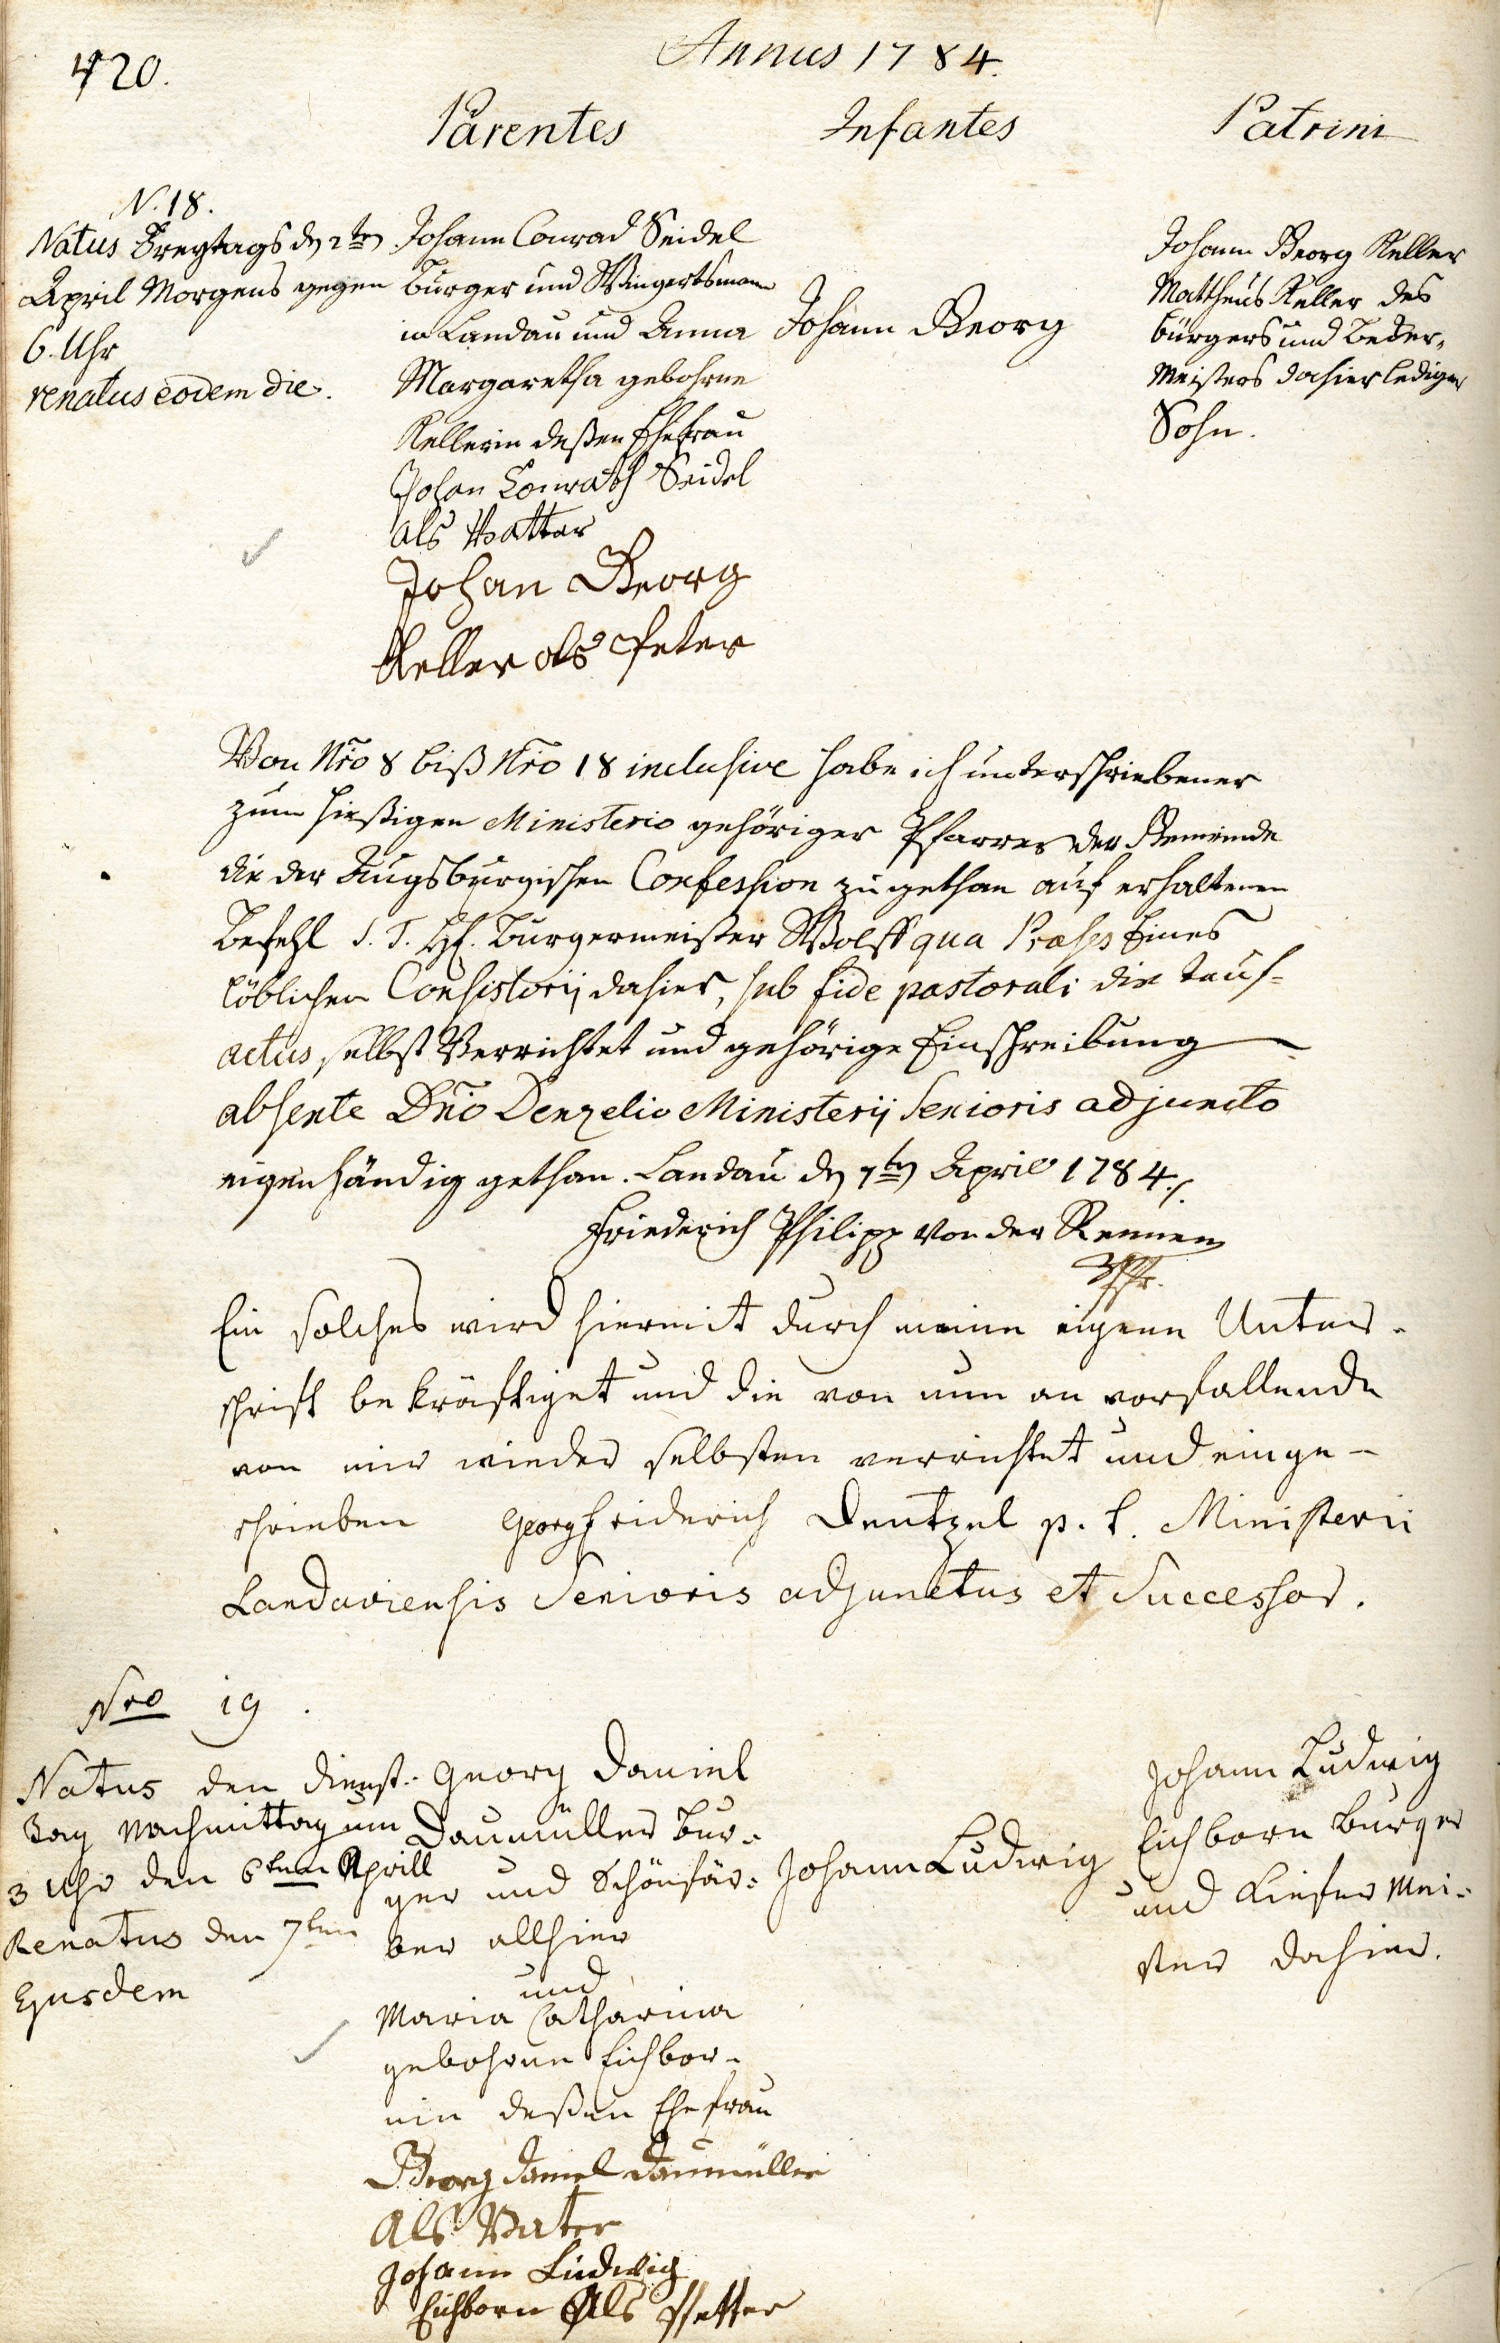 420.
Annus 1784.
Parentes Infantes Patrini
N. 18.
Natus Freytags den 2ten
April Morgens gegen
6. Uhr
renatus eodem die.
Johann Conrad Seidel
Burger und Wingertsmann
in Landau und Anna
Margaretha gebohrne
Kellerin deßen Ehefrau
Johan Conrath Seidel
als Vatter
Johan Georg
Keller als Peter
Johann Georg
Johann Georg Keller
Mattheus Keller des
Bürgers und Becker-
Meisters dahier lediger
Sohn.
Von Nro 8 biß Nro 18 inclusive habe ich unterschriebener
zum hießigen Ministerio gehöriger Pfarrer der Gemeinde
die der Augsburgischen Confession zugethan auf erhaltenen
Befehl S. T. H. Burgermeister Wolff qua Præses Eines
löblichen Consistorij dahier, sub fide pastorali die Tauf-
actus selbst Verrichtet und gehörige Einschreibung
absente Dno Denzelio Ministerij Senioris adjuncto
eigenhändig gethan. Landau den 7ten April 1784./.
Friederich Philipp von der Rennen
Pfr.
Ein solches wird hiermit durch meine eigene Unter-
schrift bekräftiget und die von nun an vorfallende
von mir wieder selbsten verrichtet und einge-
schrieben Georg Friderich Dentzel p. t. Ministerii
Landaviensis Senioris adjunctus et Successor.
Nro 19.
Natus den Dienst-
tag Nachmittag um
3 Uhr den 6ten Aprill
Renatus den 7ten
Ejusdem
Georg Daniel
Daumüller Bur-
ger und Schönfär-
ber allhier
und
Maria Catharina
gebohrne Eichbor-
nin deßen Ehefrau
Georg Daniel Daumüller
Als Vater
Johann Ludwig
Eichborn Als Pfetter
Johann Ludwig
Johann Ludwig
Eichborn Burger
und Kiefer Mei-
ster dahier.